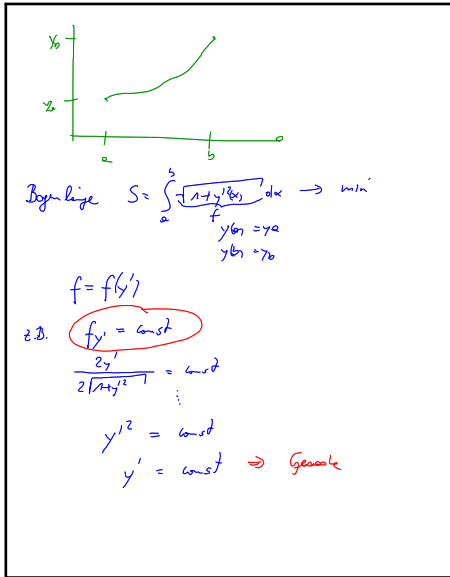 y_b
y_a
a b
Bogenlänge S = ∫_a^b √(1+y'²(x)) dx → min
f
y(a) = y_a
y(b) = y_b
f = f(y')
z.B. f_y' = const
2y' / 2√(1+y'²) = const
⋮
y'² = const
y' = const ⇒ Gerade